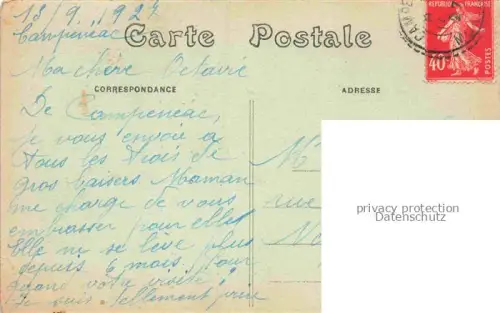 13/9 1927
Campeneac
Carte Postale
RÉPUBLIQUE FRANÇAISE
40c
POSTES
CAMPE
Ma chère Octavie
CORRESPONDANCE
ADRESSE
De Campeneac,
je vous envoie à
tous les trois de
gros baisers Maman
me charge de vous
embrasser pour elles
Elle ne se lève plus
depuis 6 mois. Pour
votre visite!
Je suis tellement
M
rue
privacy protection
Datenschutz